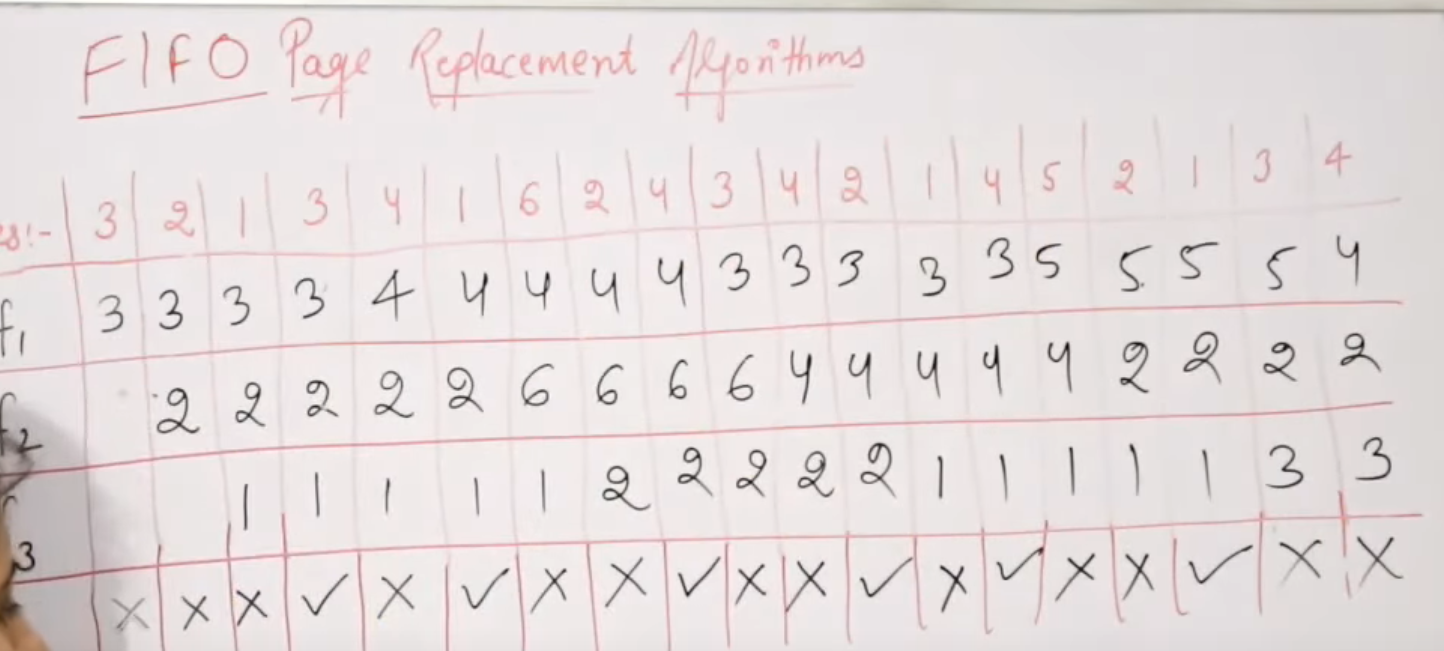 FIFO Page Replacement Algorithms
es:- 3 2 1 3 4 1 6 2 4 3 4 2 1 4 5 2 1 3 4
f1 3 3 3 3 4 4 4 4 4 3 3 3 3 3 5 5 5 5 4
f2 2 2 2 2 2 6 6 6 6 4 4 4 4 4 2 2 2 2
3 1 1 1 1 1 2 2 2 2 2 1 1 1 1 1 3 3
x x x ✓ x ✓ x x ✓ x x ✓ x ✓ x x ✓ x x